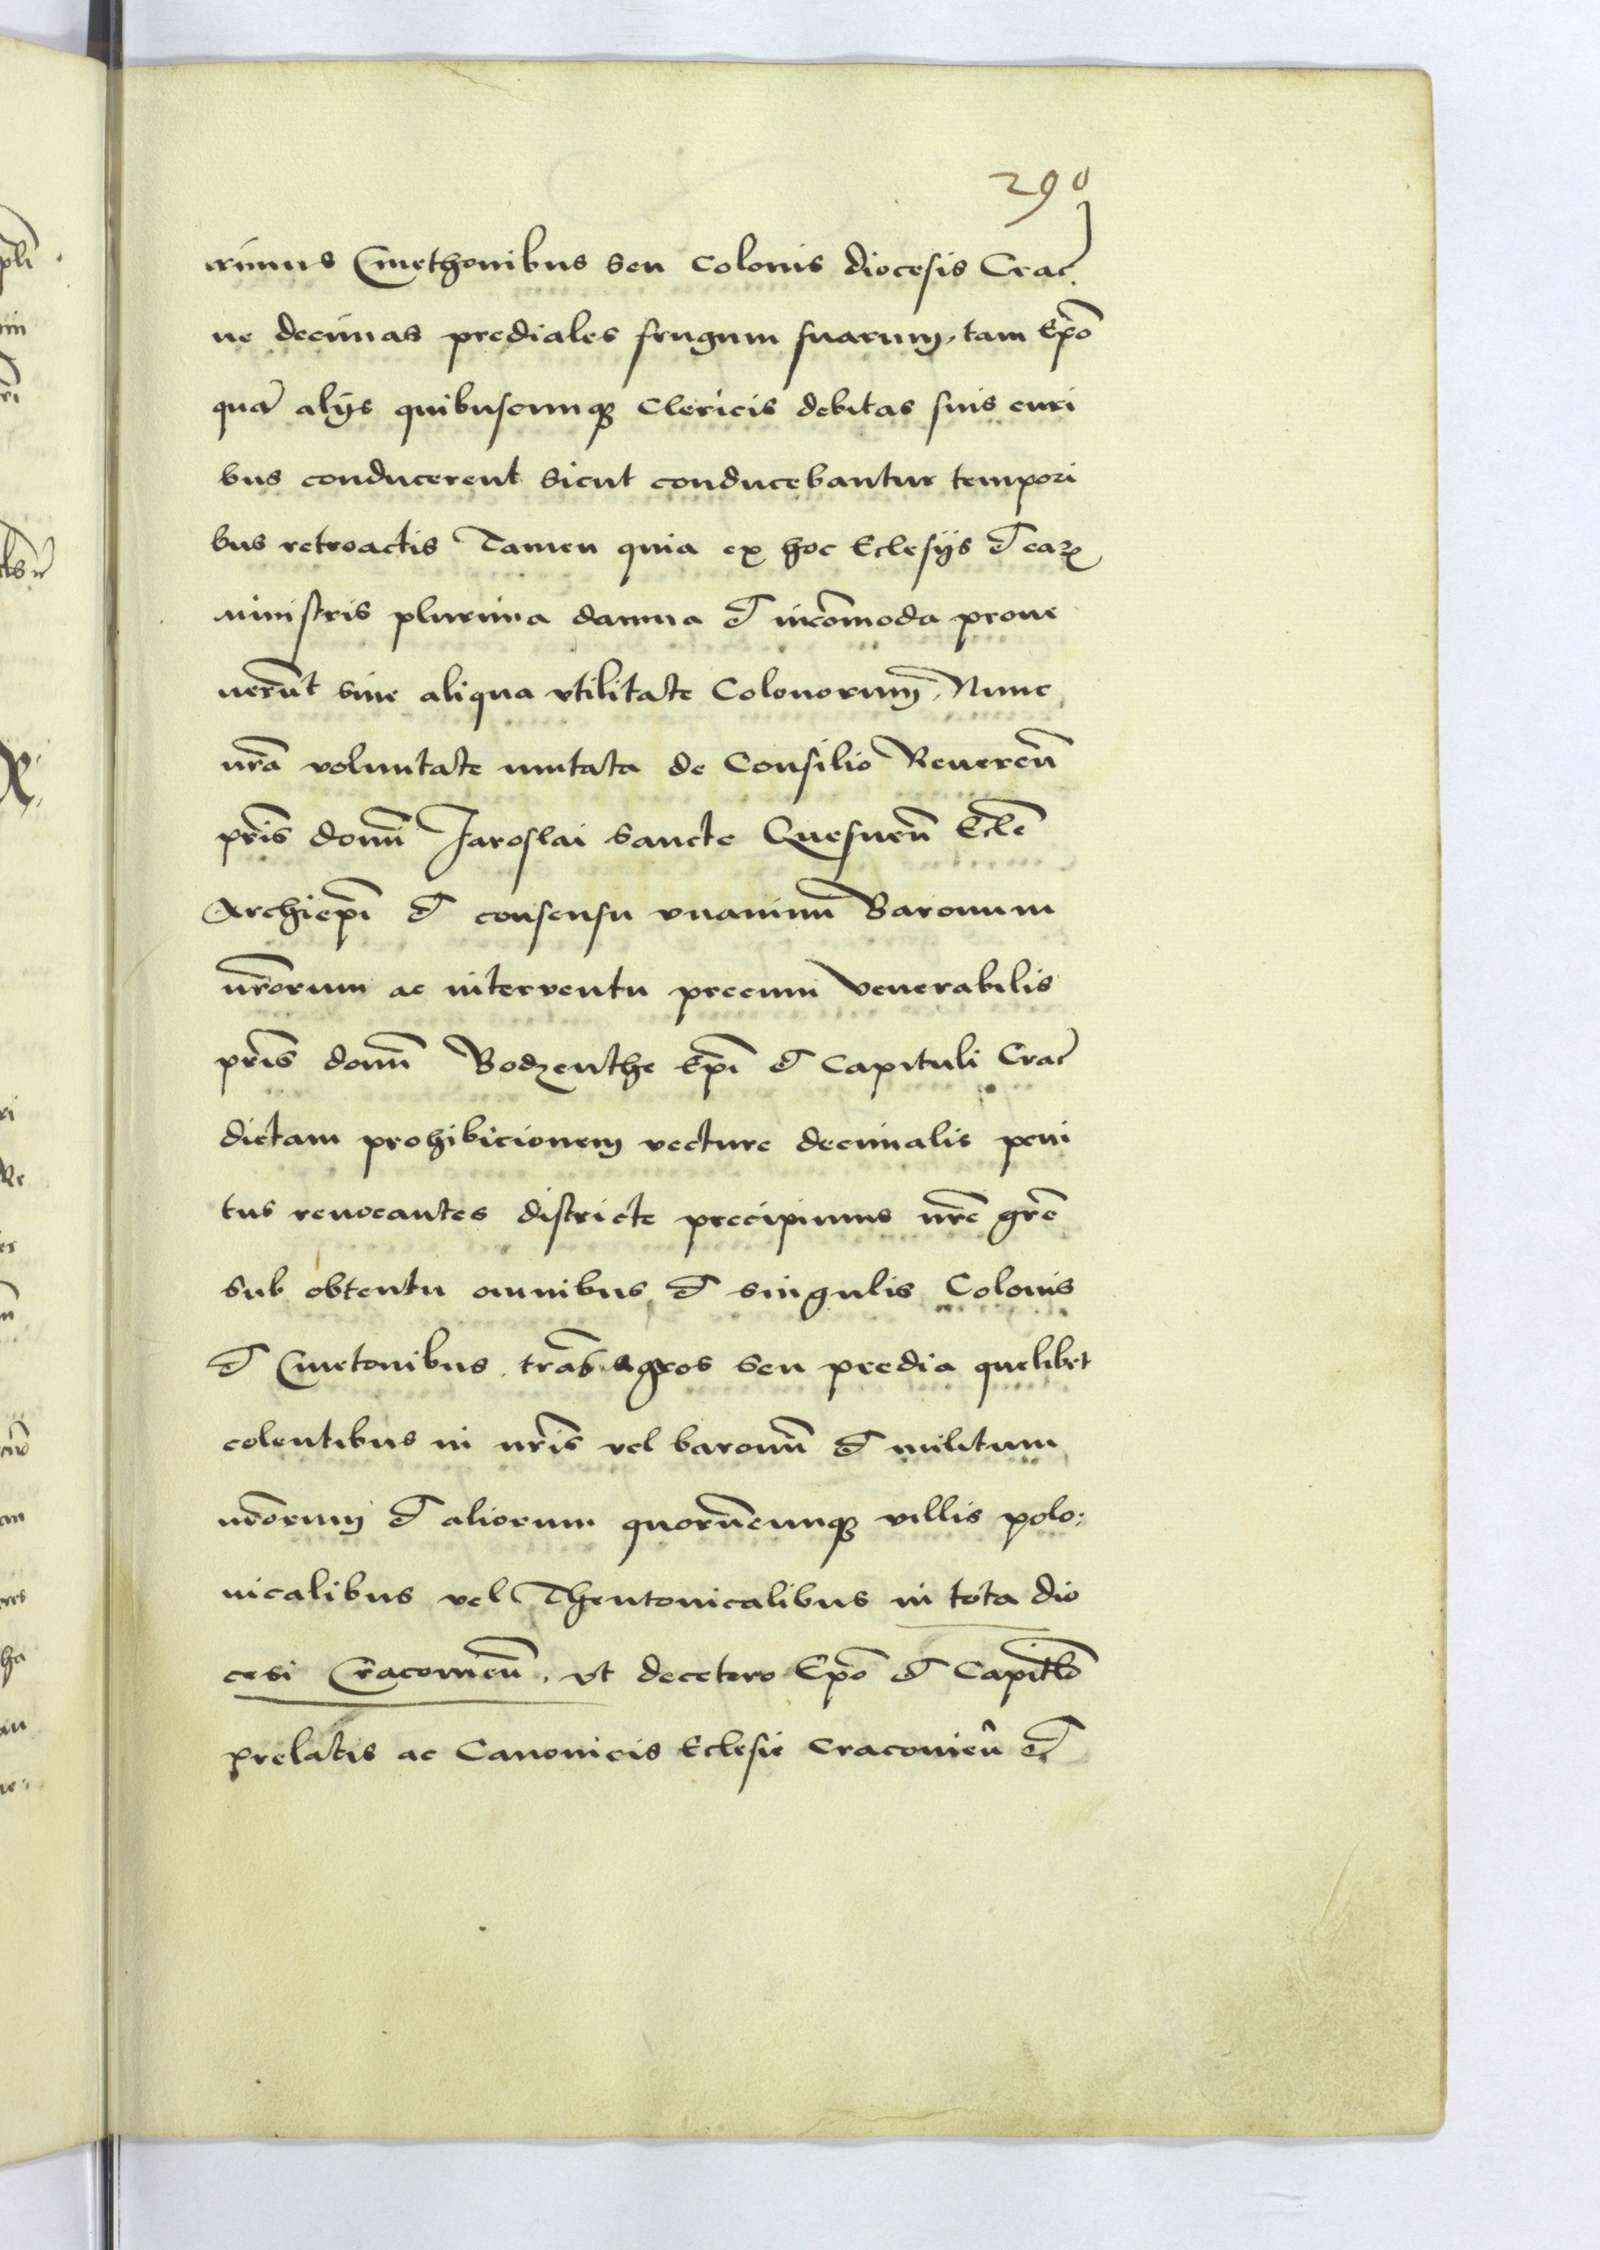 290
rimus Cmethonibus seu colonis diocesis Crac̄
ne decimas prediales frugum suarum, tam Ep̄o
qua᷈ alijs quibuscumqȝ Clericis debitas suis curi
bus conducerent sicut conducebantur tempori
bus retroactis Tamen quia ex hoc Eclesijs et eaꝝ
ministris plurima damna et incōmoda proue
nerūt sine aliqua vtilitate Colonorum, Nunc
nr̄a voluntate mutata de Consilio Reueren̄
pr̄is domī Jaroslai sancte Gnesnen̄ Ecl̄e
Archiep̄i et consensu vnanimi Baronum
nr̄orum ac interventu precum Venerabilis
pr̄is domī Bodzenthe Ep̄i et Capituli Crac̄
dictam prohibicionem vecture decimalis peni
tus reuocantes districte precipimus nr̄e gr̄e
sub obtentu omnibus et singulis Colonis
et Cmetonibus, tr̄as agros seu predia quelibet
colentibus in nr̄is vel baronū et militum
nr̄orum et aliorum quorūcumqȝ villis polo:
nicalibus vel Theutonicalibus in tota dio
cesi Cracouien̄, vt decetero Ep̄o et Capitl̄o
prelatis ac Canonicis Eclesie Cracouien̄ et